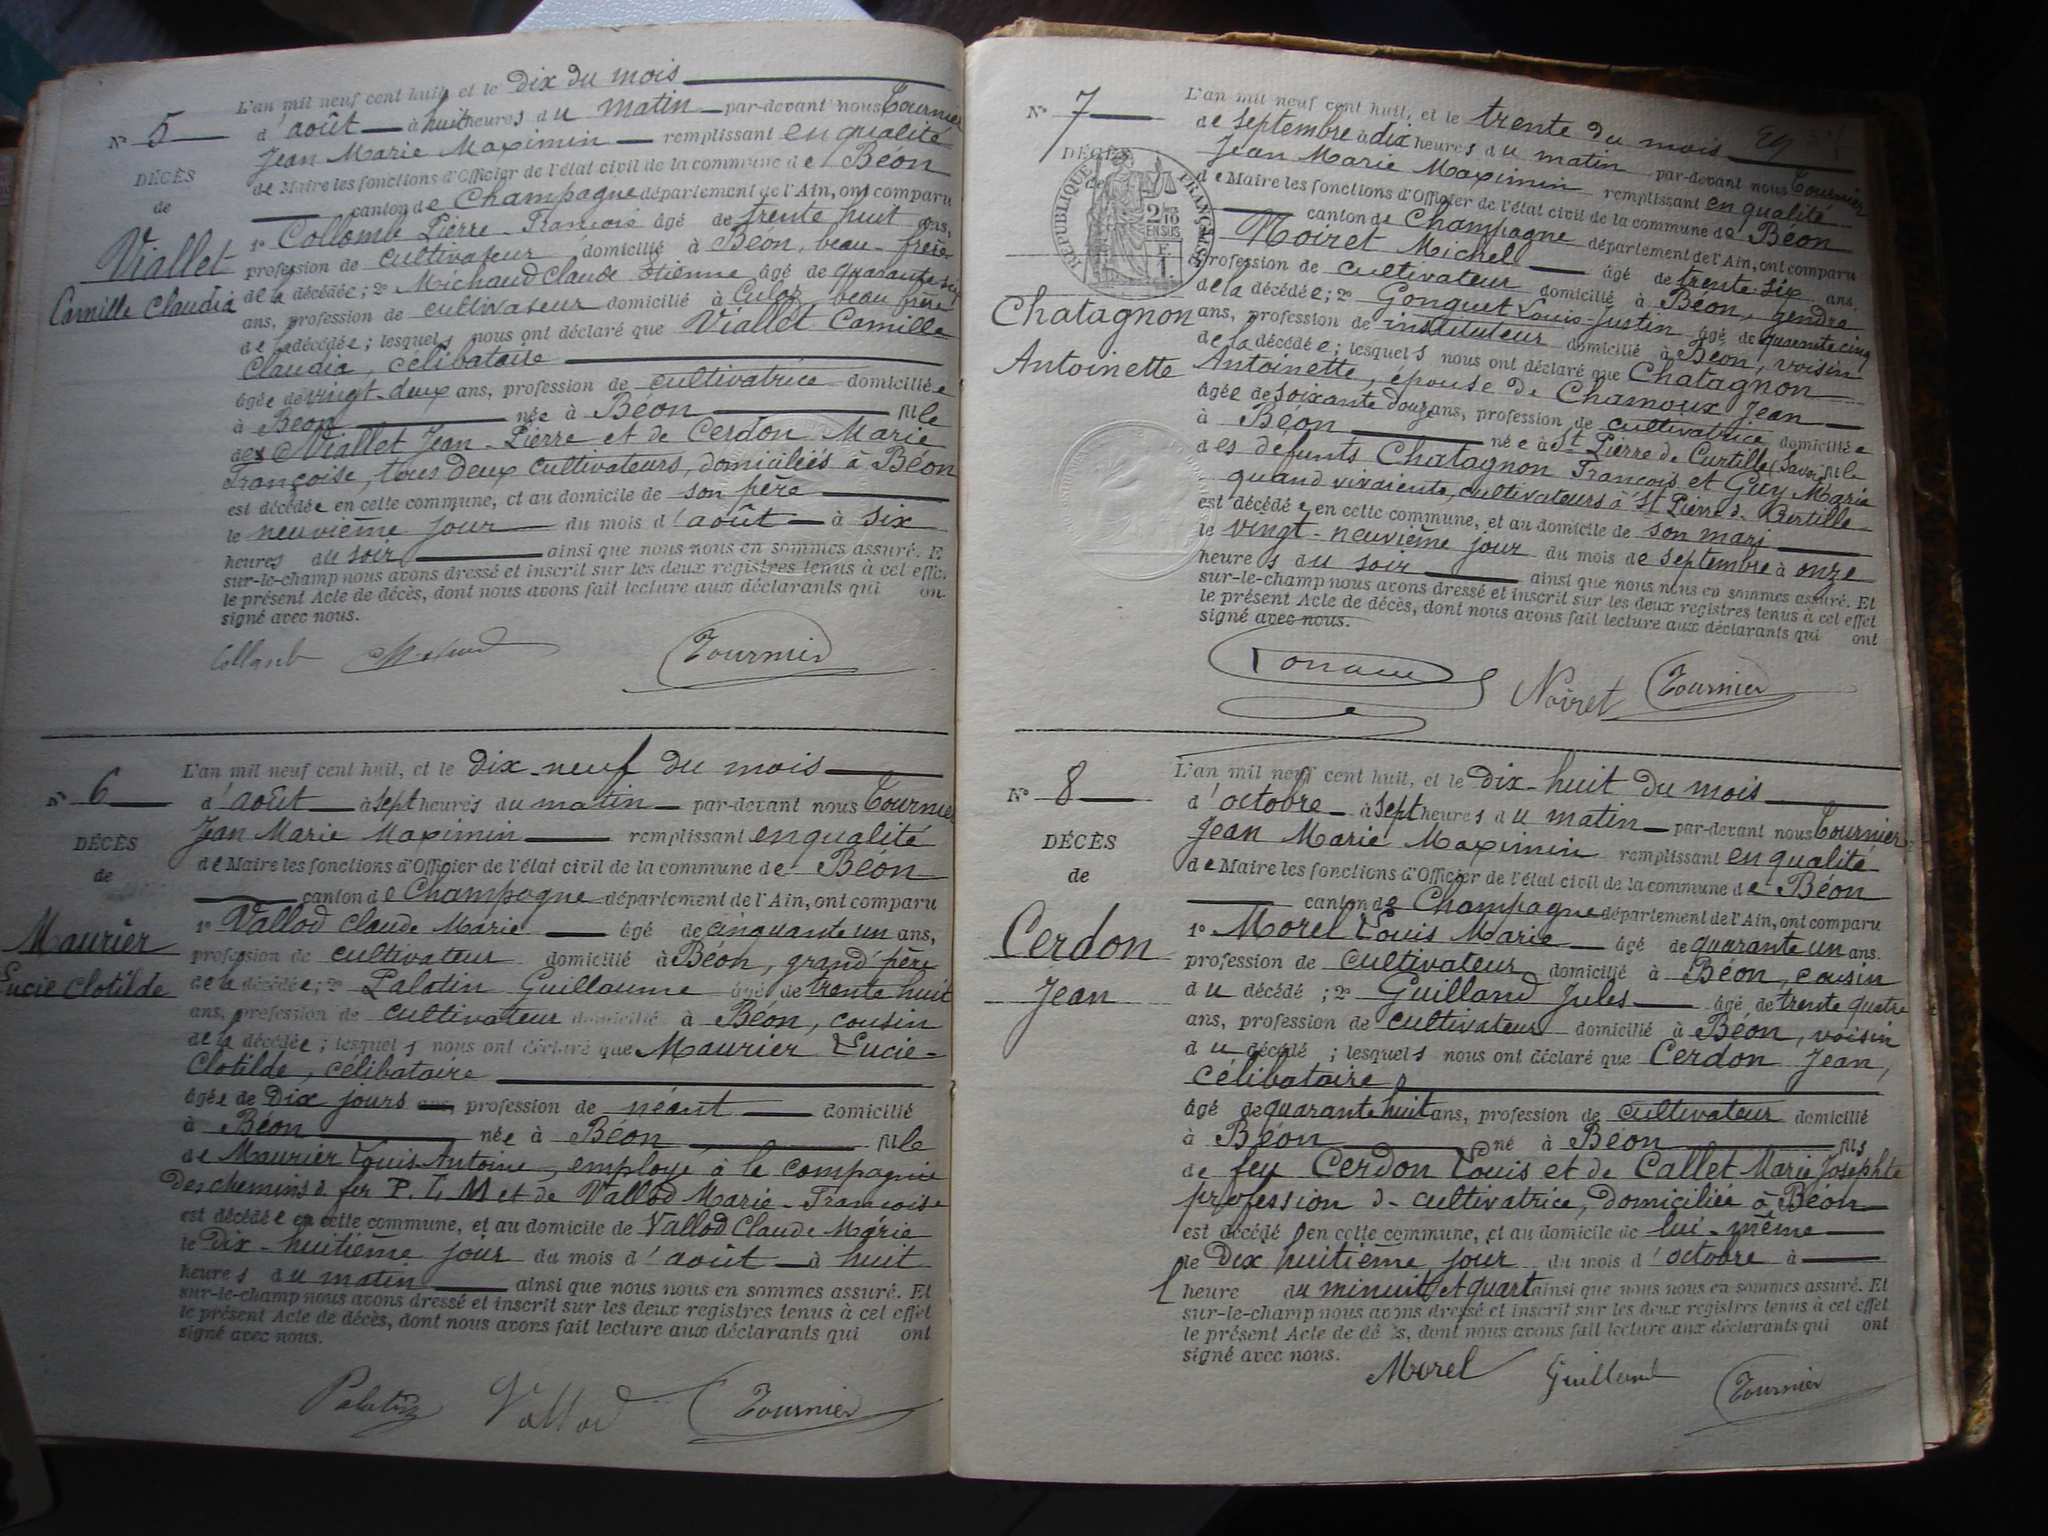 L'an mil neuf cent huit, et le dix du mois
N° 5
d'août à huit heures du matin par-devant nous Tournier
Jean Marie Maximin remplissant en qualité
DÉCÈS
de Maire les fonctions d'Officier de l'état civil de la commune de Béon
de
canton de Champagne département de l'Ain, ont comparu
1° Collomb Pierre-François âgé de trente huit ans,
Viallet
profession de cultivateur domicilié à Béon, beau-frère
Camille Claudia
de la décédée; 2° Michaud Claude Etienne âgé de quarante
ans, profession de cultivateur domicilié à Culoz, beau frère
de la décédée; lesquels nous ont déclaré que Viallet Camille
Claudia, célibataire
âgée de vingt-deux ans, profession de cultivatrice domiciliée
à Béon née à Béon fille
des Viallet Jean-Pierre et de Cerdon Marie
Françoise, tous deux cultivateurs, domiciliés à Béon
est décédée en cette commune, et au domicile de son père
le neuvième jour du mois d'août à six
heures du soir ainsi que nous nous en sommes assuré. E
sur-le-champ nous avons dressé et inscrit sur les deux registres tenus à cet effe
le présent Acte de décès, dont nous avons fait lecture aux déclarants qui on
signé avec nous.
Collomb Michaud Tournier
L'an mil neuf cent huit, et le dix-neuf du mois
N° 6
d'août à sept heures du matin par-devant nous Tournier
Jean Marie Maximin remplissant en qualité
DÉCÈS
de Maire les fonctions d'Officier de l'état civil de la commune de Béon
de
canton de Champagne département de l'Ain, ont comparu
1° Vallod Claude Marie âgé de cinquante un ans,
Maurier
profession de cultivateur domicilié à Béon, grand'père
Lucie Clotilde
de la décédée; 2° Palatin Guillaume âgé de trente huit
ans, profession de cultivateur domicilié à Béon, cousin
de la décédée; lesquels nous ont déclaré que Maurier Lucie-
Clotilde, célibataire
âgée de dix jours ans, profession de néant domicilié
à Béon née à Béon fille
de Maurier Louis Antoine, employé à la compagnie
des chemins d. fer P. L. M et de Vallod Marie-Françoise
est décédée en cette commune, et au domicile de Vallod Claude Marie
le dix-huitième jour du mois d'août à huit
heures du matin ainsi que nous nous en sommes assuré. Et
sur-le-champ nous avons dressé et inscrit sur les deux registres tenus à cet effet
le présent Acte de décès, dont nous avons fait lecture aux déclarants qui ont
signé avec nous.
Palatin Vallod Tournier
L'an mil neuf cent huit, et le trente du mois
N° 7
de septembre à dix heures du matin par-devant nous Tournier
Jean Marie Maximin remplissant en qualité
DÉCÈS
de
RÉPUBLIQUE FRANÇAISE
2/10
EN SUS
de Maire les fonctions d'Officier de l'état civil de la commune de Béon
canton de Champagne département de l'Ain, ont comparu
Noiret Michel âgé de trente-six ans,
profession de cultivateur domicilié à Béon, gendre
de la décédée; 2° Gonguet Louis-Justin âgé de quarante cinq
Chatagnon
ans, profession de instituteur domicilié à Béon, voisin
de la décédée; lesquels nous ont déclaré que Chatagnon
Antoinette
Antoinette, épouse de Chamoux Jean
âgée de soixante douze ans, profession de cultivatrice domiciliée
à Béon née à St Pierre de Curtille (Savoie) fille
des défunts Chatagnon François et Guy Marie
quand vivaient, cultivateurs à St Pierre d. Curtille
est décédée en cette commune, et au domicile de son mari
le vingt-neuvième jour du mois de septembre à onze
heures du soir ainsi que nous nous en sommes assuré. Et
sur-le-champ nous avons dressé et inscrit sur les deux registres tenus à cet effet
le présent Acte de décès, dont nous avons fait lecture aux déclarants qui ont
signé avec nous.
Noiret Tournier
L'an mil neuf cent huit, et le dix-huit du mois
N° 8
d'octobre à sept heures du matin par-devant nous Tournier
Jean Marie Maximin remplissant en qualité
DÉCÈS
de Maire les fonctions d'Officier de l'état civil de la commune de Béon
de
canton de Champagne département de l'Ain, ont comparu
1° Morel Louis Marie âgé de quarante un ans.
Cerdon
profession de cultivateur domicilié à Béon, cousin
Jean
du décédé; 2° Guilland Jules âgé de trente quatre
ans, profession de cultivateur domicilié à Béon, voisin
du décédé; lesquels nous ont déclaré que Cerdon Jean,
célibataire
âgé de quarante huit ans, profession de cultivateur domicilié
à Béon né à Béon fils
de feu Cerdon Louis et de Callet Marie Josephte
profession d. cultivatrice, domiciliée à Béon
est décédé en cette commune, et au domicile de lui-même
le dix huitième jour du mois d'octobre à
heure du minuit et quart ainsi que nous nous en sommes assuré. Et
sur-le-champ nous avons dressé et inscrit sur les deux registres tenus à cet effet
le présent Acte de décès, dont nous avons fait lecture aux déclarants qui ont
signé avec nous.
Morel Guilland Tournier